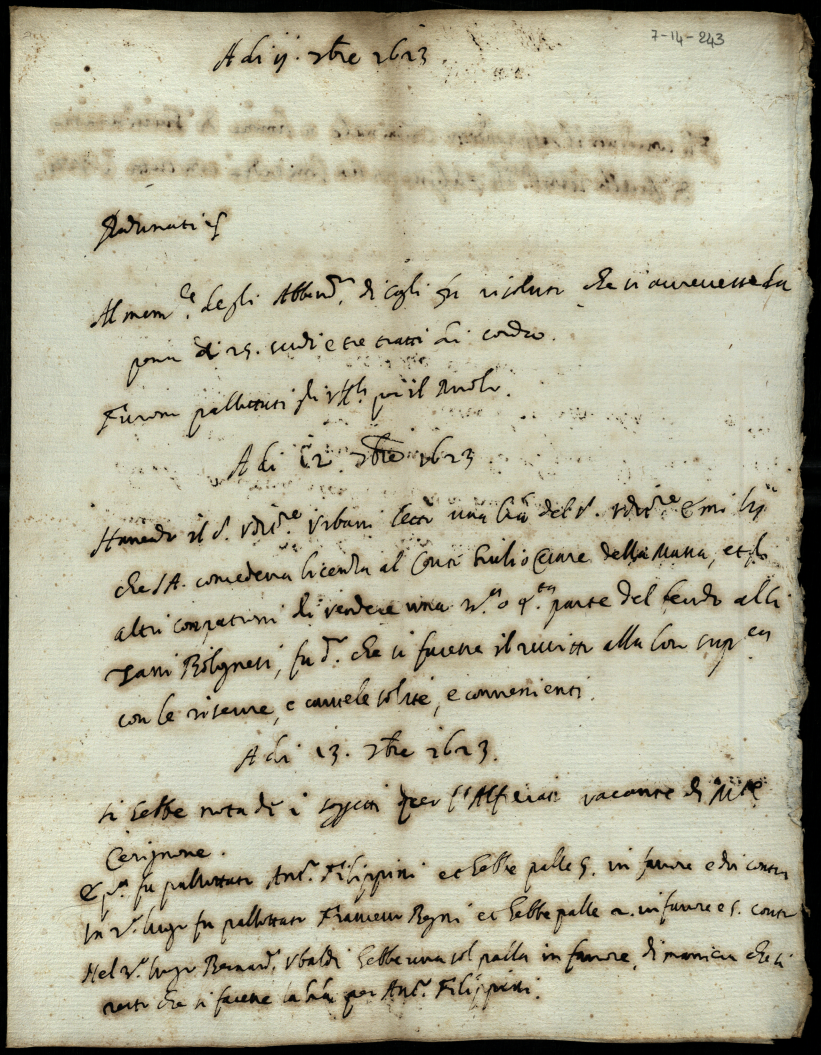 7-14-243
A di 11. 7bre 1623
Adunati
Al mem.le degli Abband.ti di Cagli fu risoluto che si accrescesse la
pena di 25. scudi e tre tratti di corda.
Furon pallottati gli per il Ruolo.
A di 12 7bre 1623
Havendo il S. Udit.re Urbani letto una lra del S. Udit.re
che S.A. concedeva licenza al Conte Giulio Cesare della Massa, et gli
altri compatroni di vendere una 3.a o 4.ta parte del feudo alli
Bolognesi, fu d.o che si facesse il rescritto alla lor sup.ca
con le riserve, e cautele solite, e convenienti.
A di 13. 7bre 1623.
Si hebbe nota di i soggetti per l'Alfierato vacante di M.te
Cerignone.
Et p.a fu pallottato Ant.o Filippini et hebbe palle 5. in favore e doi contra
In 2.o luogo fu pallottato Francesco Begni et hebbe palle 2. in favore e 5. contra
Nel 3.o luogo Bernard.o Ubaldi hebbe una sol palla in favore, di maniera che si
restò che si facesse la lra per Ant.o Filippini.